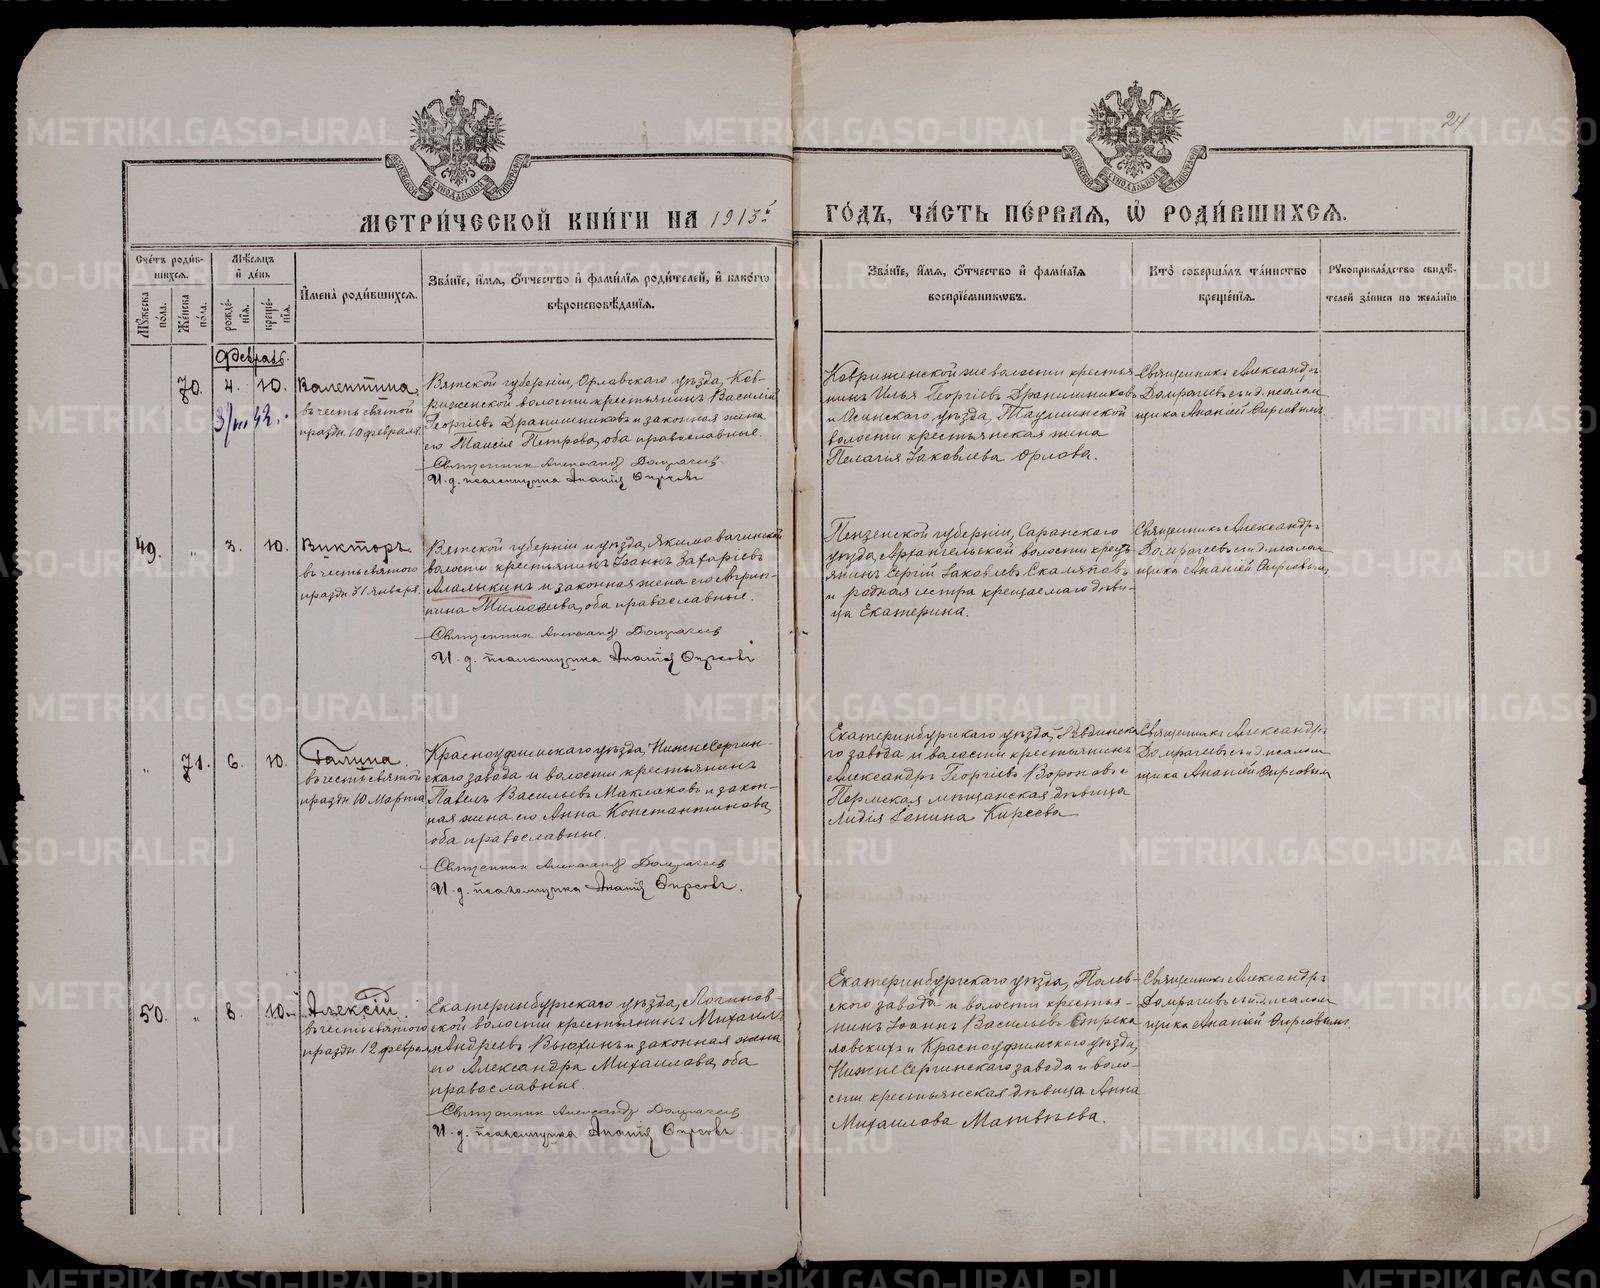 24
МЕТРИ́ЧЕСКОЙ КНИ́ГИ НА 1913 г.
ГО́ДЪ, ЧА́СТЬ ПЕ́РВАЯ, Ѡ҆ РОДИ́ВШИХСЯ.
Счетъ роди́вшихся.
Мꙋ́жеска по́ла.
Же́нска по́ла.
Мѣ́сяцъ и҆ де́нь
рожде́нїя.
креще́нїя.
И҆мена̀ роди́вшихся.
Зва́нїе, и҆́мя, ѻ҆́тчество и҆ фами́лїя роди́телей, и҆ како́гѡ
вѣроисповѣ́данїя.
Зва́нїе, и҆́мя, ѻ҆́тчество и҆ фами́лїя
воспрїе́мникѡвъ.
Кто̀ соверша́лъ та́инство
креще́нїя.
Рꙋкоприкла́дство свидѣ́-
телей за́писи по жела́нїю
Февраль.
70. 4. 10. Валентина
въ честь святой
праздн. 10 февраля.
3/III 42.
Вятской губерніи, Орловскаго уѣзда, Ков-
риженской волости крестьянинъ Василій
Георгіевъ Дранишниковъ и законная жена
его Таисія Петрова, оба православные.
Священникъ Александръ Домрачевъ
И. д. псаломщика Ананій Фирсовъ
Ковриженской же волости крестья-
нинъ Илья Георгіевъ Дранишниковъ
и Осинскаго уѣзда,
волости крестьянская жена
Пелагія Іаковлева Орлова.
Священникъ Александръ
Домрачевъ съ и. д. псалом-
щика Ананіей Фирсовымъ
49. " 3. 10. Викторъ
въ честь святого
праздн. 31 января.
Вятской губерніи и уѣзда, Якимовагинской
волости крестьянинъ Іоаннъ Захаріевъ
Алалыкинъ и законная жена его Агрип-
пина Тимофеева, оба православные.
Священникъ Александръ Домрачевъ
И. д. псаломщика Ананій Фирсовъ
Пензенской губерніи, Саранскаго
уѣзда, Архангельской волости кресть-
янинъ Сергій Іаковлевъ
и родная сестра крещаемаго дѣви-
ца Екатерина.
Священникъ Александръ
Домрачевъ съ и. д. псалом-
щика Ананіей Фирсовымъ
" 71. 6. 10. Галина.
въ честь святой
праздн. 10 Марта
Красноуфимскаго уѣзда, НижнеСергин-
скаго завода и волости крестьянинъ
Павелъ Васильевъ Маклаковъ и закон-
ная жена его Анна Константинова,
оба православные.
Священникъ Александръ Домрачевъ
И. д. псаломщика Ананій Фирсовъ.
Екатеринбургскаго уѣзда, Ревдинска-
го завода и волости крестьянинъ
Александръ Георгіевъ Вороновъ и
Пермская мѣщанская дѣвица
Лидія Киреева
Священникъ Александръ
Домрачевъ съ и. д. псалом-
щика Ананіей Фирсовымъ
50. " 8. 10. Алексій.
въ честь святого
праздн. 12 февраля
Екатеринбургскаго уѣзда, Логинов-
ской волости крестьянинъ Михаилъ
Андреевъ Вьюхинъ и законная жена
его Александра Михаилова, оба
православные.
Священникъ Александръ Домрачевъ
И. д. псаломщика Ананій Фирсовъ
Екатеринбургскаго уѣзда, Полев-
ского завода и волости крестья-
нинъ Іоаннъ Васильевъ Стрека-
ловскихъ и Красноуфимскаго уѣзда,
НижнеСергинскаго завода и воло-
сти крестьянская дѣвица Анна
Михаилова Матвѣева.
Священникъ Александръ
Домрачевъ съ и. д. псалом-
щика Ананіей Фирсовымъ.
METRIKI.GASO-URAL.RU